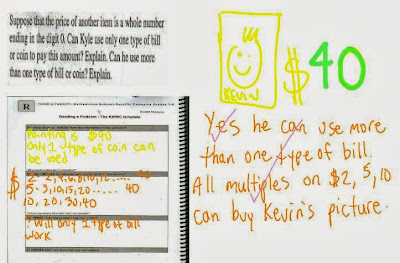 Suppose that the price of another item is a whole number
ending in the digit 0. Can Kyle use only one type of bill
or coin to pay this amount? Explain. Can he use more
than one type of bill or coin? Explain.
KEVIN
$40
R
Reading a Problem – The KWHC template
Painting is $40
Only 1 type of coin can
be used
$
5-5,10,15,20...... 40
10, 20, 30, 40
? Will only 1 type of bill
work
Yes he can use more
than one type of bill.
All multiples on $2, 5, 10
can buy Kevin's picture.